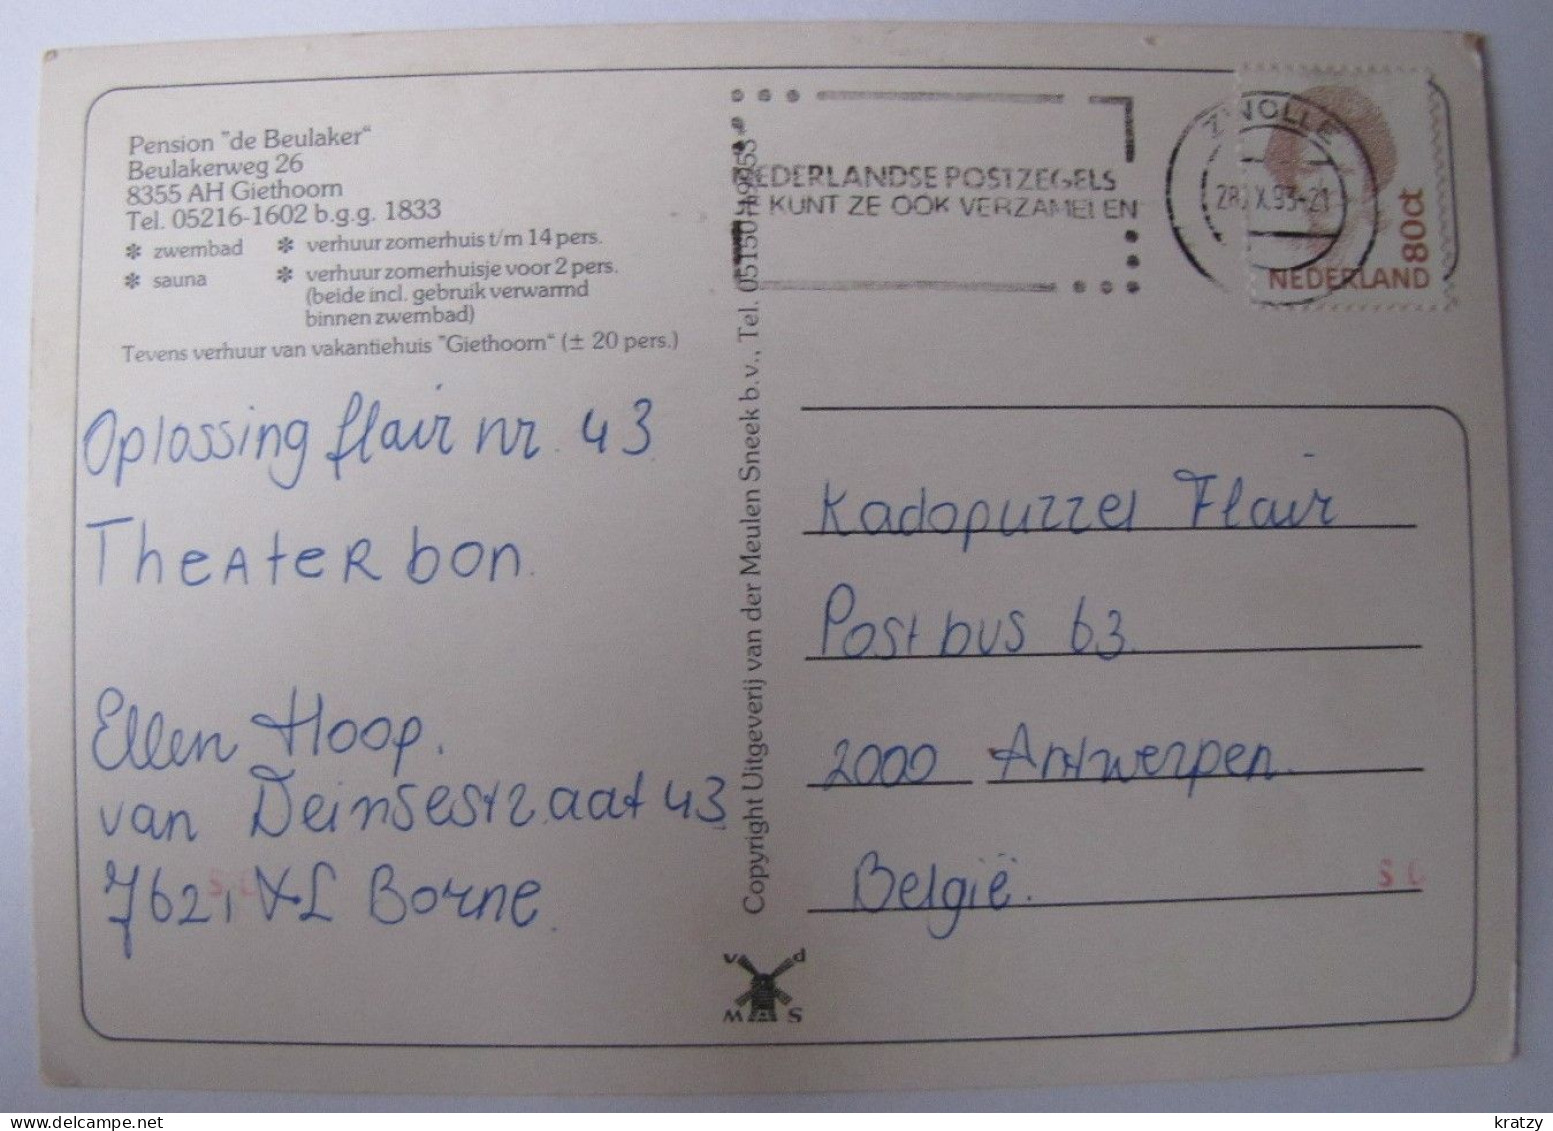 Pension "de Beulaker"
Beulakerweg 26
8355 AH Giethoorn
Tel. 05216-1602 b.g.g. 1833
✻ zwembad ✻ verhuur zomerhuis t/m 14 pers.
✻ sauna ✻ verhuur zomerhuisje voor 2 pers.
(beide incl. gebruik verwarmd
binnen zwembad)
Tevens verhuur van vakantiehuis "Giethoorn" (± 20 pers.)
Oplossing flair nr. 43.
TheAteR bon.
Ellen Hoop.
van Deinsestraat 43
7621 VL Borne.
Copyright Uitgeverij van der Meulen Sneek b.v., Tel.
v d
M S
NEDERLANDSE POSTZEGELS
KUNT ZE OOK VERZAMELEN
ZWOLLE
28.X.93-21
80ct
NEDERLAND
Kadopuzzel Flair
Postbus 63.
2000 Antwerpen.
België.
kratzy